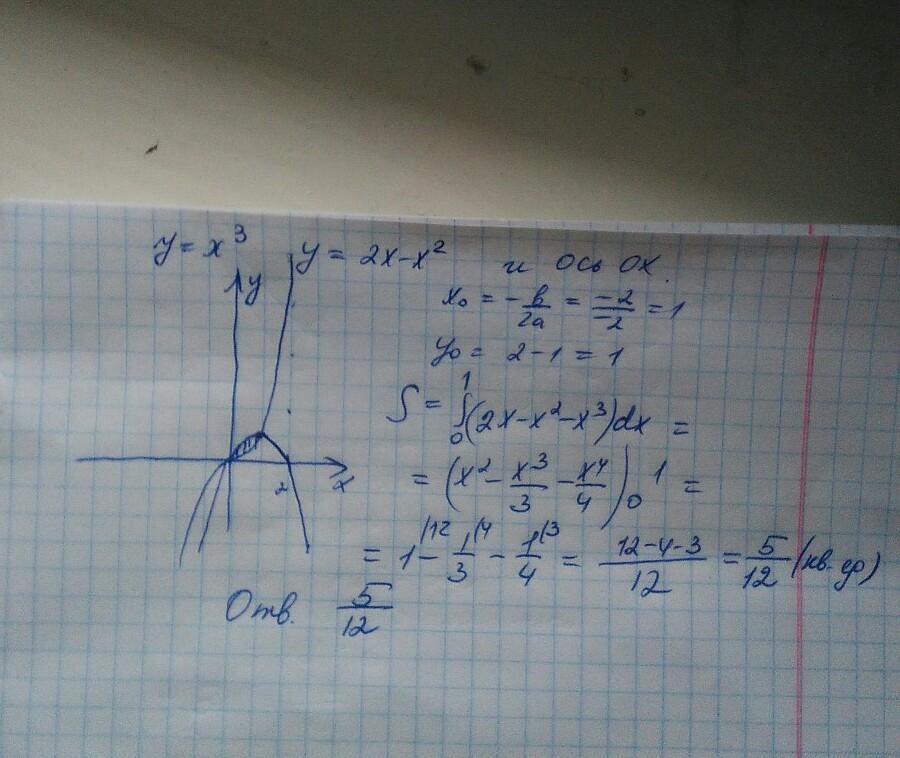 y = x³ y = 2x-x² и ось OX.
y
x₀ = -b/2a = -2/-2 = 1
y₀ = 2-1 = 1
S = ∫₀¹(2x-x²-x³)dx =
2 x
= (x² - x³/3 - x⁴/4)₀¹ =
= 1/¹² - 1/3/⁴ - 1/4/³ = 12-4-3/12 = 5/12 (кв. ер)
Отв. 5/12